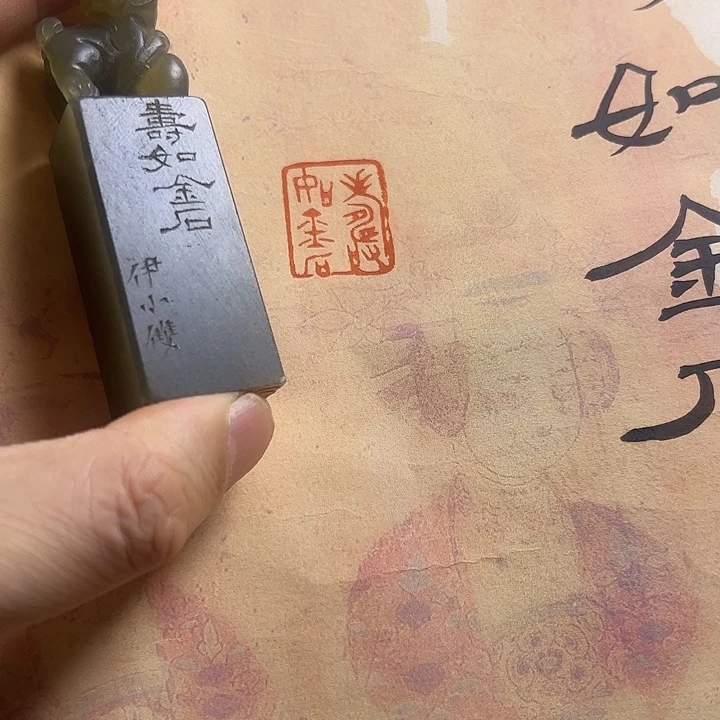 壽如金石
伊小
壽
如金石
如金